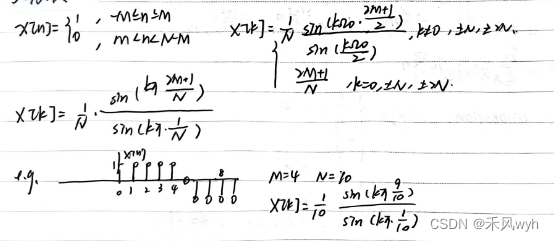 x[n]={1 , -M≤n≤M X[k]={1/N sin(kΩ0·2M+1/2)/sin(kΩ0/2) , k≠0, ±N, ±2N.
0 , M<n<N-M
2M+1/N , k=0, ±N, ±2N.
X[k]= 1/N · sin(kπ 2M+1/N)/sin(kπ·1/N)
e.g. 1 x[n] 0 1 2 3 4 8 M=4 N=10
X[k]= 1/10 sin(kπ 9/10)/sin(kπ 1/10)
CSDN @禾风wyh